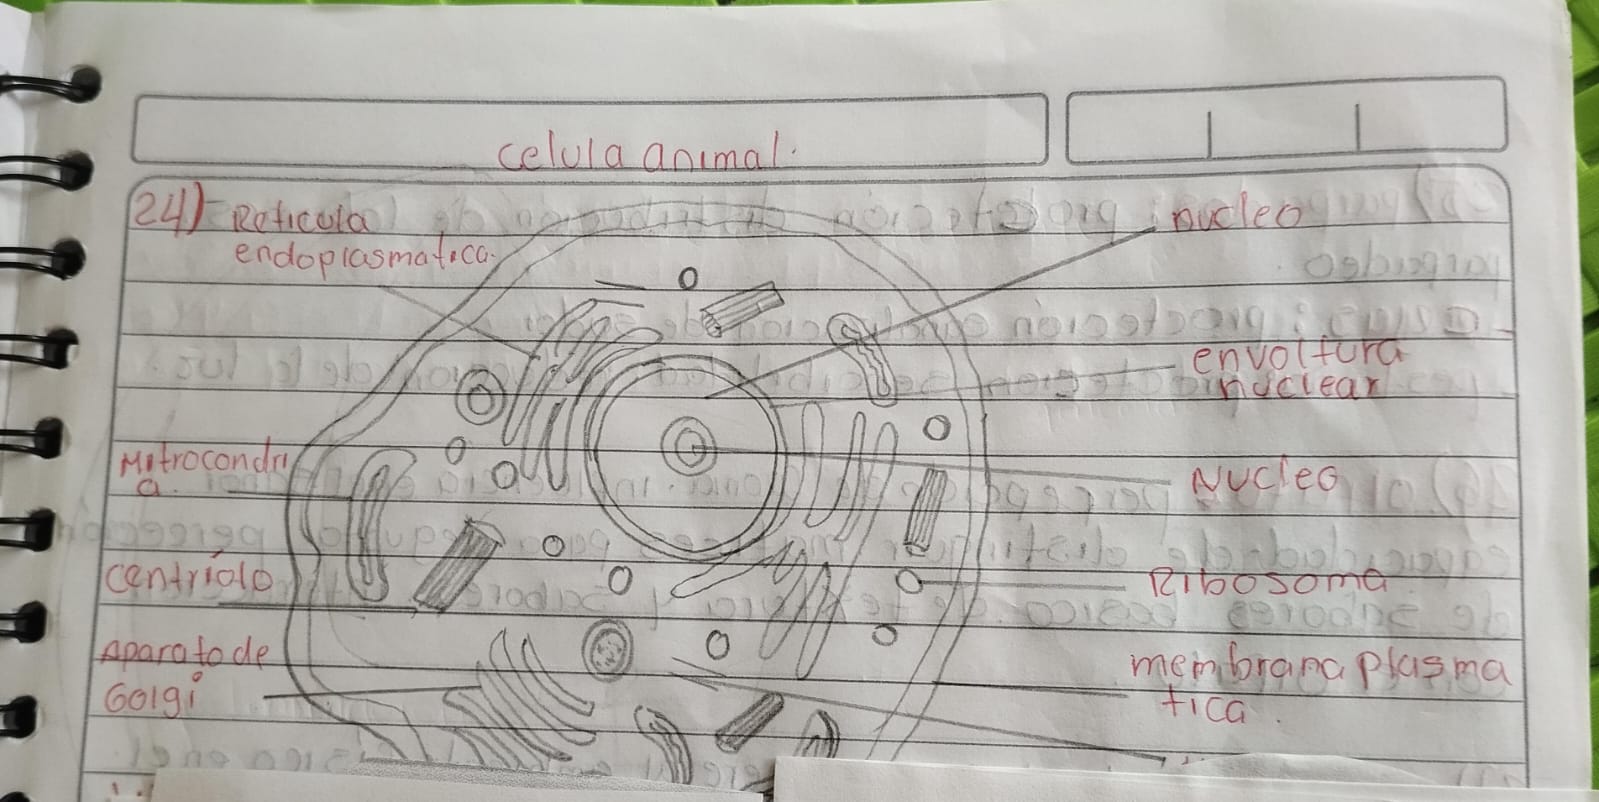 celula animal.
24) Reticula
endoplasmatica.
nucleo
envoltura
nuclear
Mitrocondri
a.
Nucleo
centríolo
Ribosoma
Aparato de
Golgi
membrana plasma
tica.